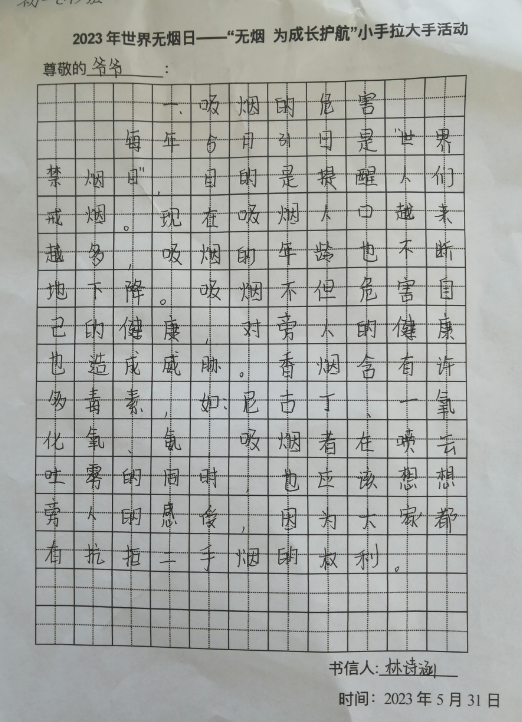 2023年世界无烟日——“无烟 为成长护航”小手拉大手活动
尊敬的爷爷：
一、吸烟的危害
每年5月31日是“世界
禁烟日”，目的是提醒人们
戒烟。现在吸烟人口越来
越多，吸烟的年龄也不断
地下降。吸烟不但危害自
己的健康，对旁人的健康
也造成威胁。香烟含有许
多毒素，如：尼古丁、一氧
化氧、氨 吸烟者在喷云
吐雾的同时，也应该想想
旁人的感受，因为大家都
有抗拒二手烟的权利。
书信人：林诗涵
时间：2023年5月31日